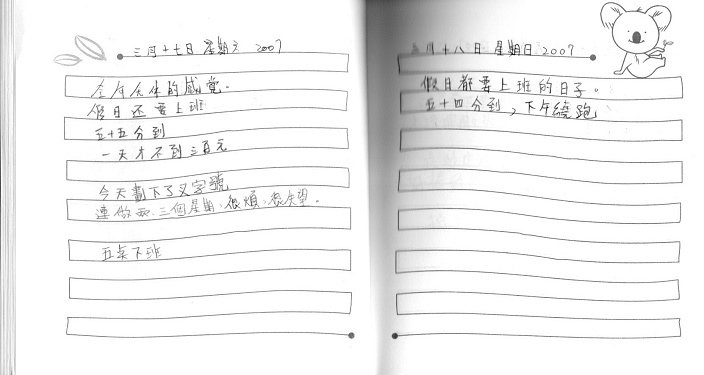 三月十七日 星期六 2007
全年无休的感覺。
假日还要上班
五十五分到
一天才不到三百元
今天劃下了叉字號
連做两、三個星期,很煩,很失望。
五点下班
三月十八日 星期日 2007
假日都要上班的日子。
五十四分到,下午繞跑